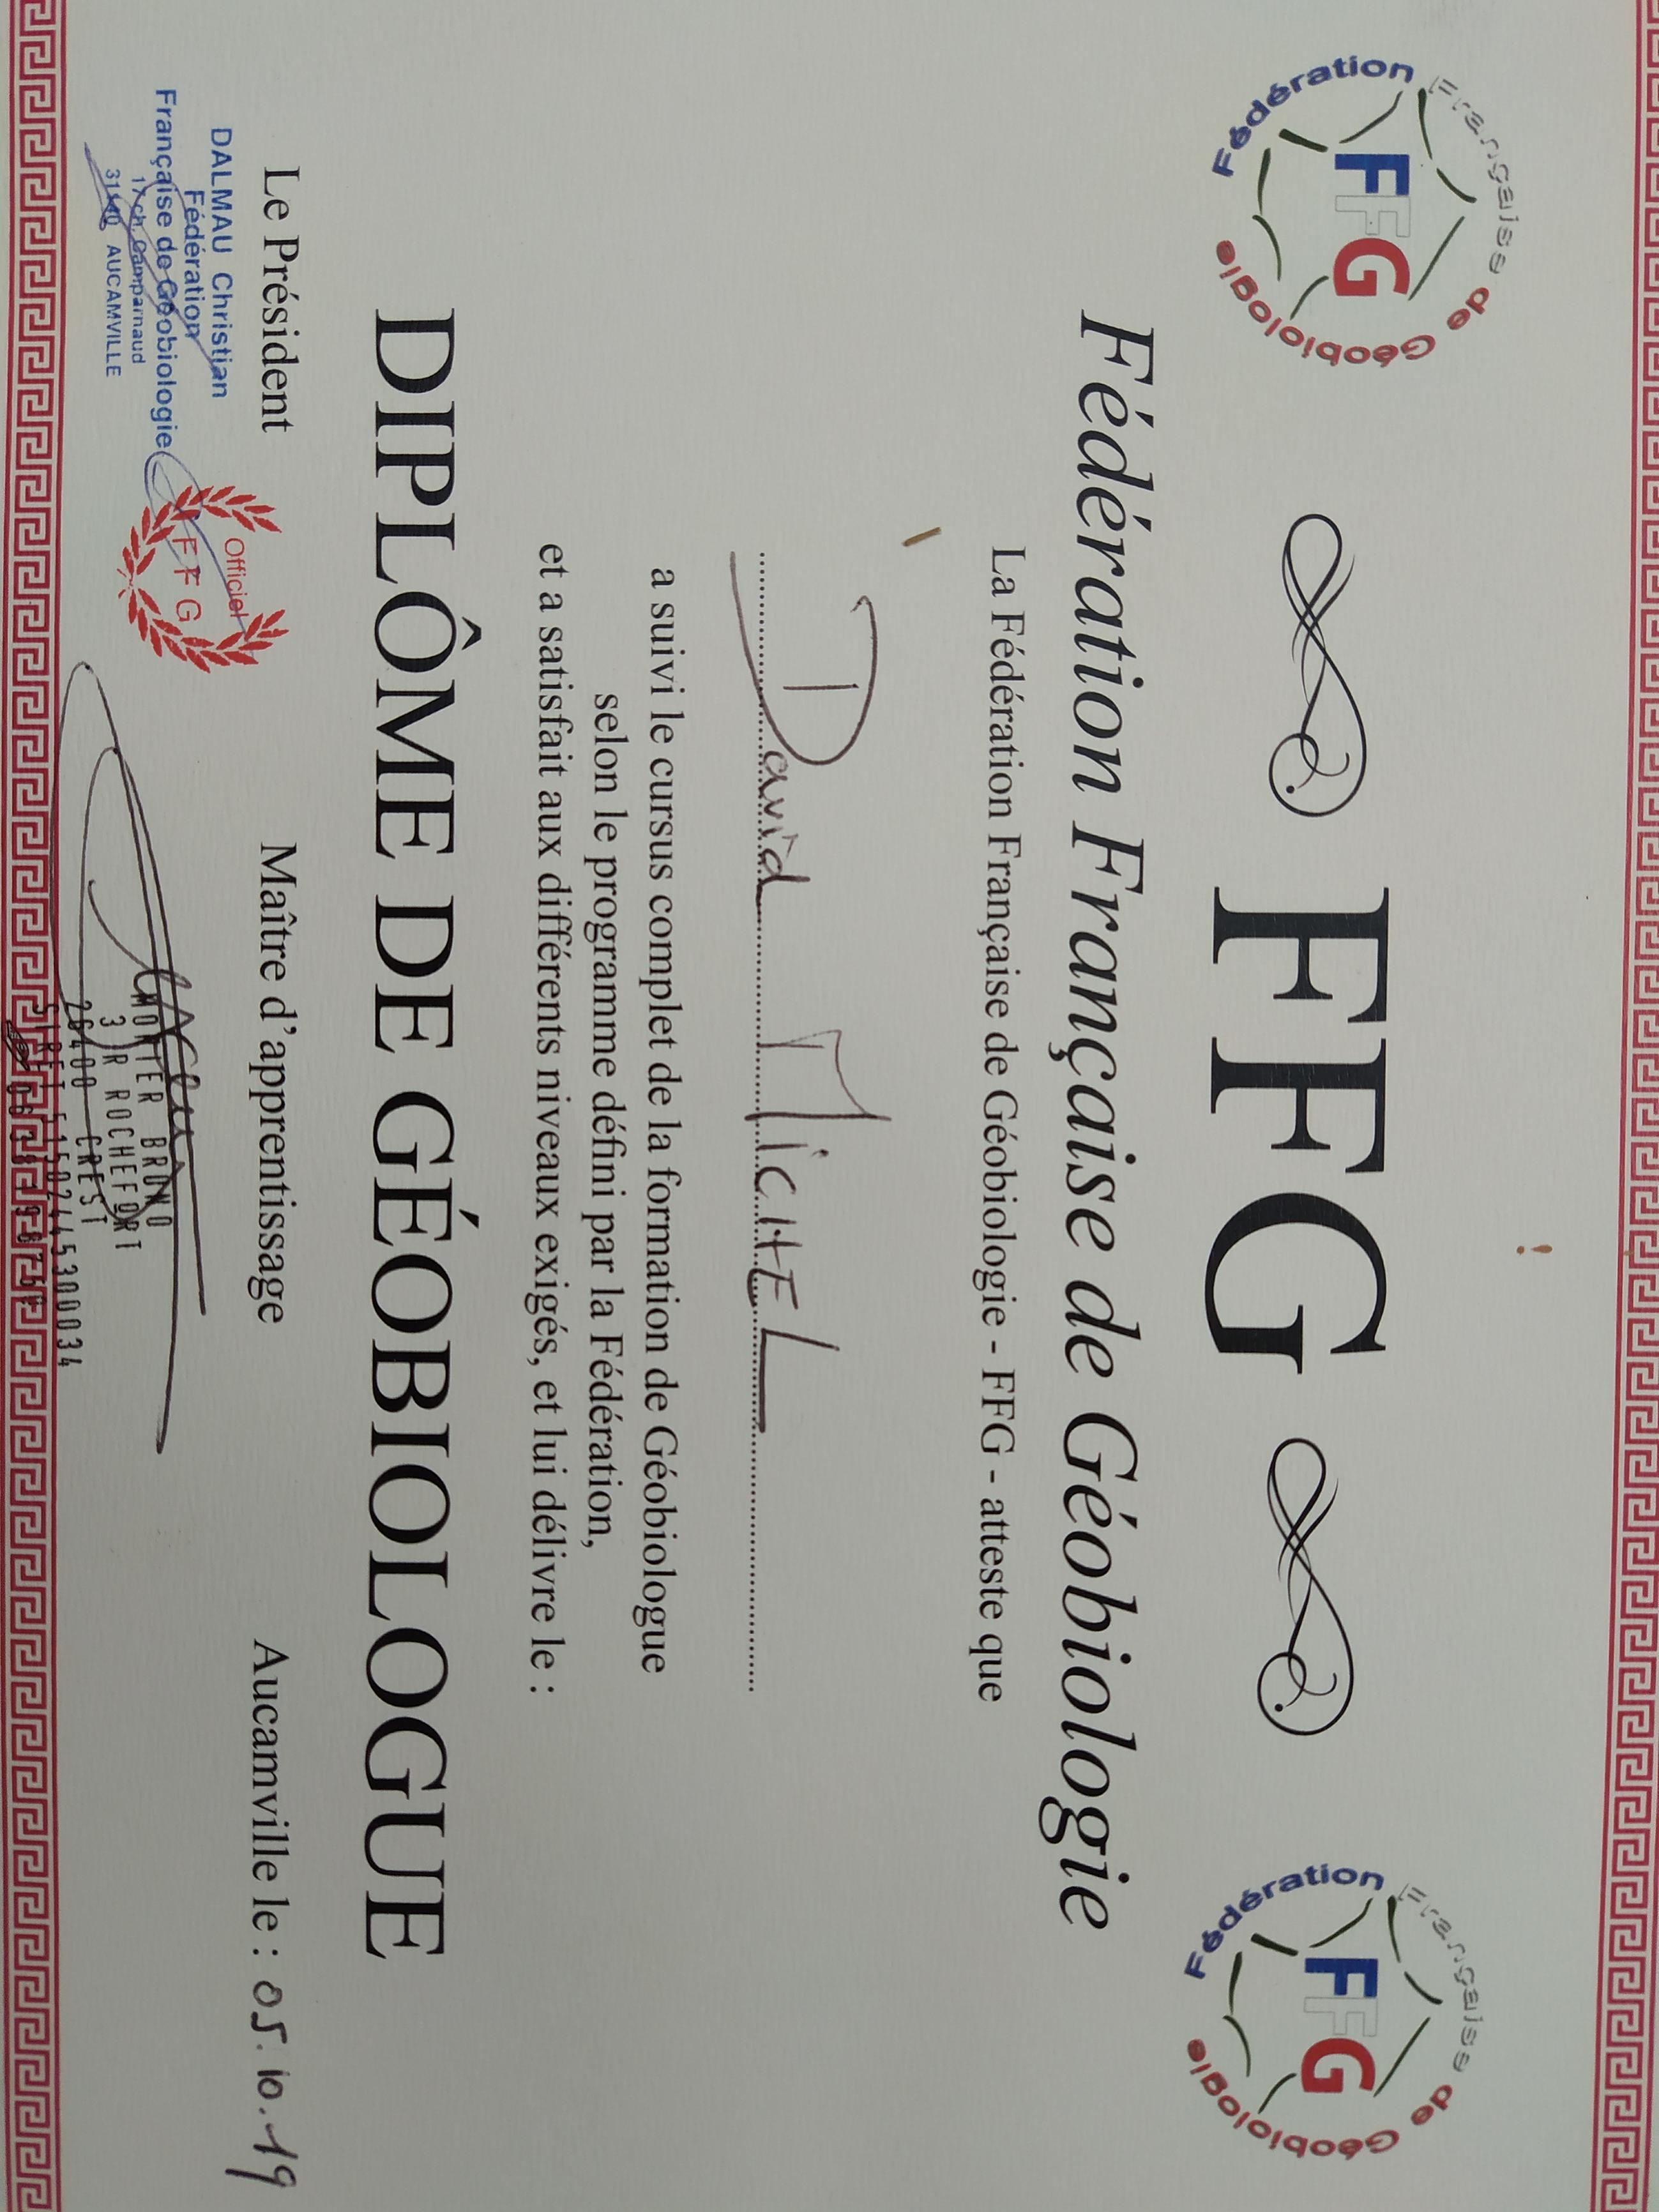 Fédération Française de Géobiologie
FFG
FFG
Fédération Française de Géobiologie
FFG
Fédération Française de Géobiologie
La Fédération Française de Géobiologie - FFG - atteste que
David MICHEL
a suivi le cursus complet de la formation de Géobiologue
selon le programme défini par la Fédération,
et a satisfait aux différents niveaux exigés, et lui délivre le :
DIPLÔME DE GÉOBIOLOGUE
Le Président
Maître d'apprentissage
Aucamville le : 05.10.19
DALMAU Christian
Fédération
Française de Géobiologie
17 ch. Camparnaud
31140 AUCAMVILLE
Officiel
FFG
MORIER BRUNO
3 R ROCHEFORT
26400 CREST
SIRET